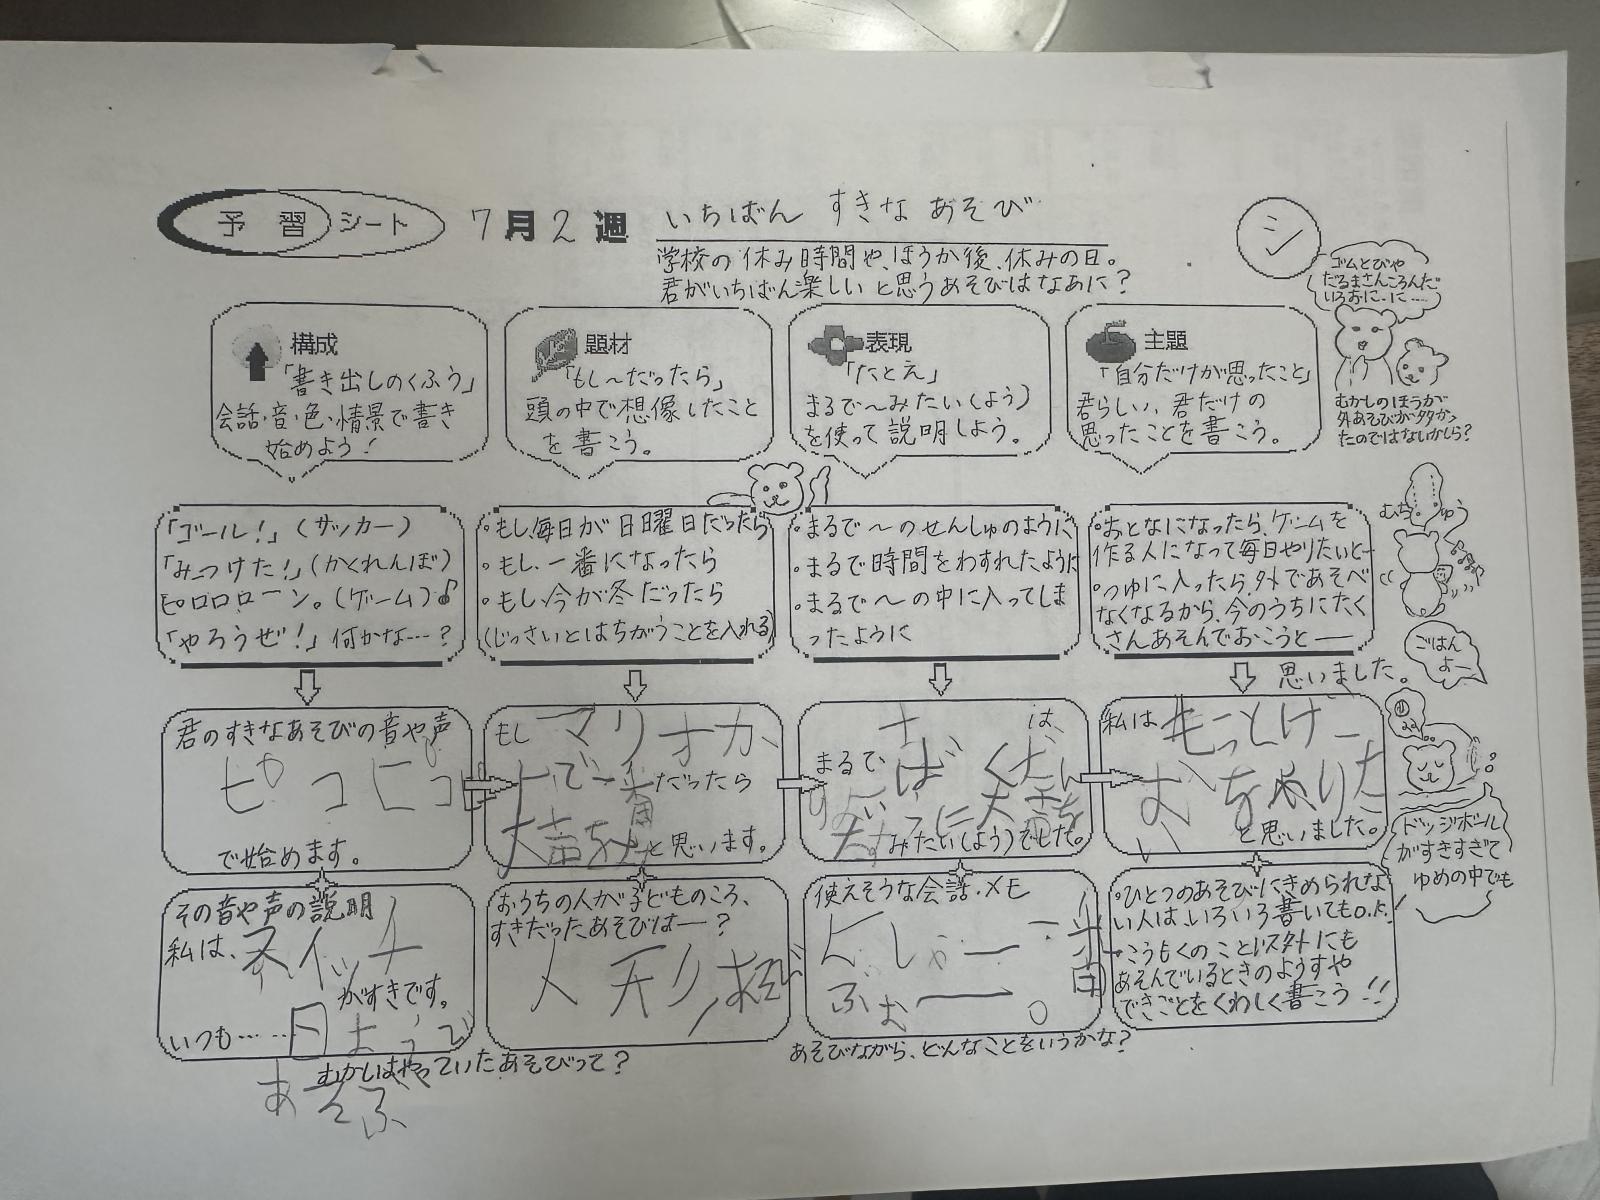 予習シート 7月2週 いちばん すきな あそび
学校の休み時間や、ほうか後、休みの日。
君がいちばん楽しいと思うあそびはなあに？
シ
ゴムとびや
だるまさんころんだ
いろおに‥に……
むかしのほうが
外あそびが多かっ
たのではないかしら？
構成
「書き出しのくふう」
会話・音・色・情景で書き
始めよう！
題材
「もし〜だったら」
頭の中で想像したこと
を書こう。
表現
「たとえ」
まるで〜みたい(よう)
を使って説明しよう。
主題
「自分だけが思ったこと」
君らしい、君だけの
思ったことを書こう。
「ゴール！」(サッカー)
「みつけた！」(かくれんぼ)
ピロロローン。(ゲーム)♪
「やろうぜ！」何かな…？
・もし、毎日が日曜日だったら
・もし、一番になったら
・もし、今が冬だったら
(じっさいとはちがうことを入れる)
・まるで〜のせんしゅのように
・まるで時間をわすれたように
・まるで〜の中に入ってしま
ったように
・おとなになったら、ゲームを
作る人になって毎日やりたいと―
・つゆに入ったら、外であそべ
なくなるから、今のうちにたく
さんあそんでおこうと――
思いました。
むちゅう
ごはん
よー
君のすきなあそびの音や声
ピコピコ
で始めます。
もしマリオカ
で一番だったら
大声を
と思います。
は、
まるで
みたい(よう)でした。
私は、もっとげー
むをやりた
い
と思いました。
ドッジボール
がすきすぎて
ゆめの中でも
その音や声の説明
私は、スイッチ
がすきです。
いつも……日ようび
あそぶ
おうちの人が子どものころ、
すきだったあそびは―？
人形
むかしはやっていたあそびって？
使えそうな会話・メモ
一番
あそびながら、どんなことをいうかな？
・ひとつのあそびにきめられな
い人は、いろいろ書いてもO.K.
・こうもくのこと以外にも
あそんでいるときのようすや
できごとをくわしく書こう!!